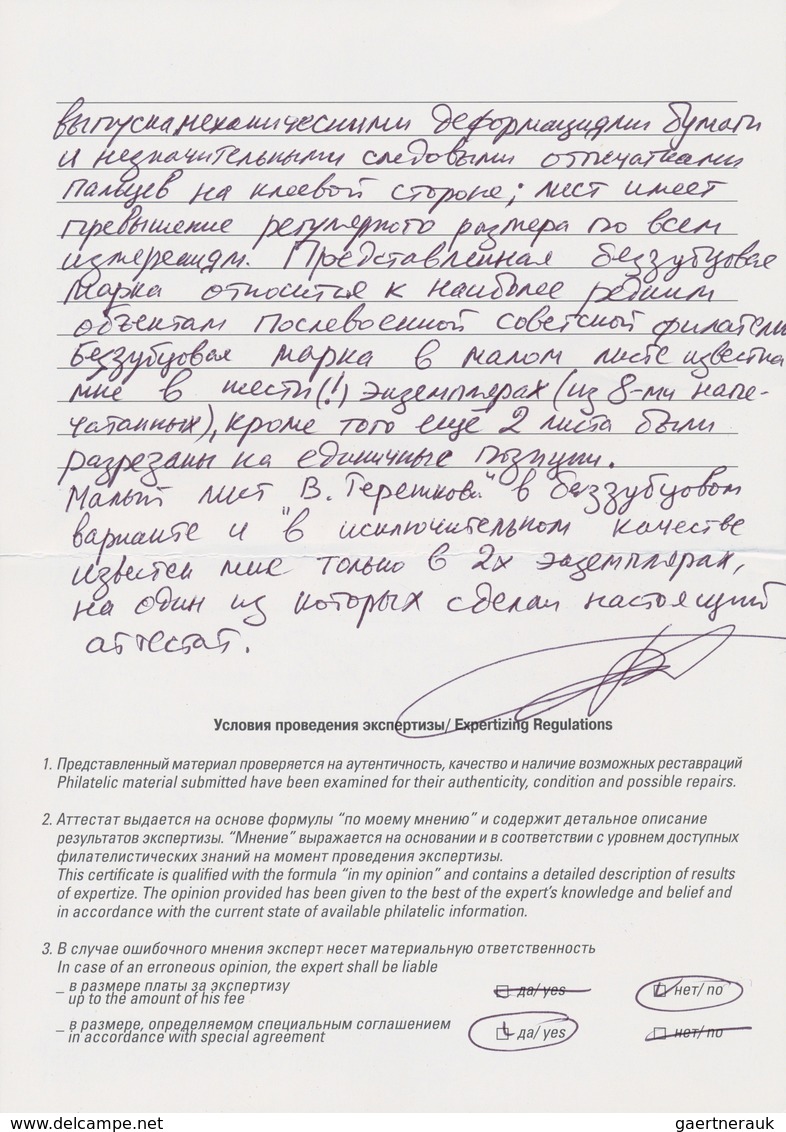 выпуска механическими деформациями бумаги
и незначительными следовыми отпечатками
пальцев на клеевой стороне; лист имеет
превышение регулярного размера по всем
измерениям. Представленная беззубцовая
марка относится к наиболее редким
объектам послевоенной советской филателии
Беззубцовая марка в малом листе известна
мне в шести(!) экземплярах (из 8-ми напе-
чатанных), кроме того ещё 2 листа были
разрезаны на единичные позиции.
Малый лист В. Терешкова" в беззубцовом
варианте и "в исключительном качестве
известен мне только в 2х экземплярах,
на один из которых сделан настоящий
аттестат.
Условия проведения экспертизы/ Expertizing Regulations
1. Представленный материал проверяется на аутентичность, качество и наличие возможных реставраций
Philatelic material submitted have been examined for their authenticity, condition and possible repairs.
2. Аттестат выдается на основе формулы “по моему мнению” и содержит детальное описание
результатов экспертизы. “Мнение” выражается на основании и в соответствии с уровнем доступных
филателистических знаний на момент проведения экспертизы.
This certificate is qualified with the formula “in my opinion” and contains a detailed description of results
of expertize. The opinion provided has been given to the best of the expert's knowledge and belief and
in accordance with the current state of available philatelic information.
3. В случае ошибочного мнения эксперт несет материальную ответственность
In case of an erroneous opinion, the expert shall be liable
_ в размере платы за экспертизу да/yes нет/no
up to the amount of his fee
_ в размере, определяемом специальным соглашением да/yes нет/no
in accordance with special agreement
www.delcampe.net gaertnerauk